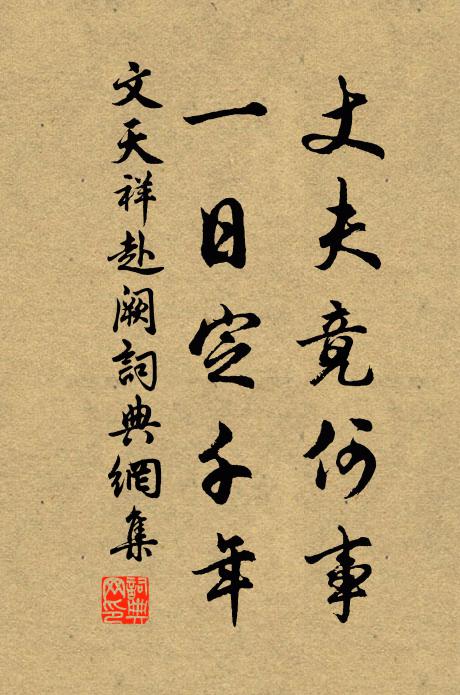 丈夫竟何事
一日定千年
文天祥赴闕詞典網集
詞典網印